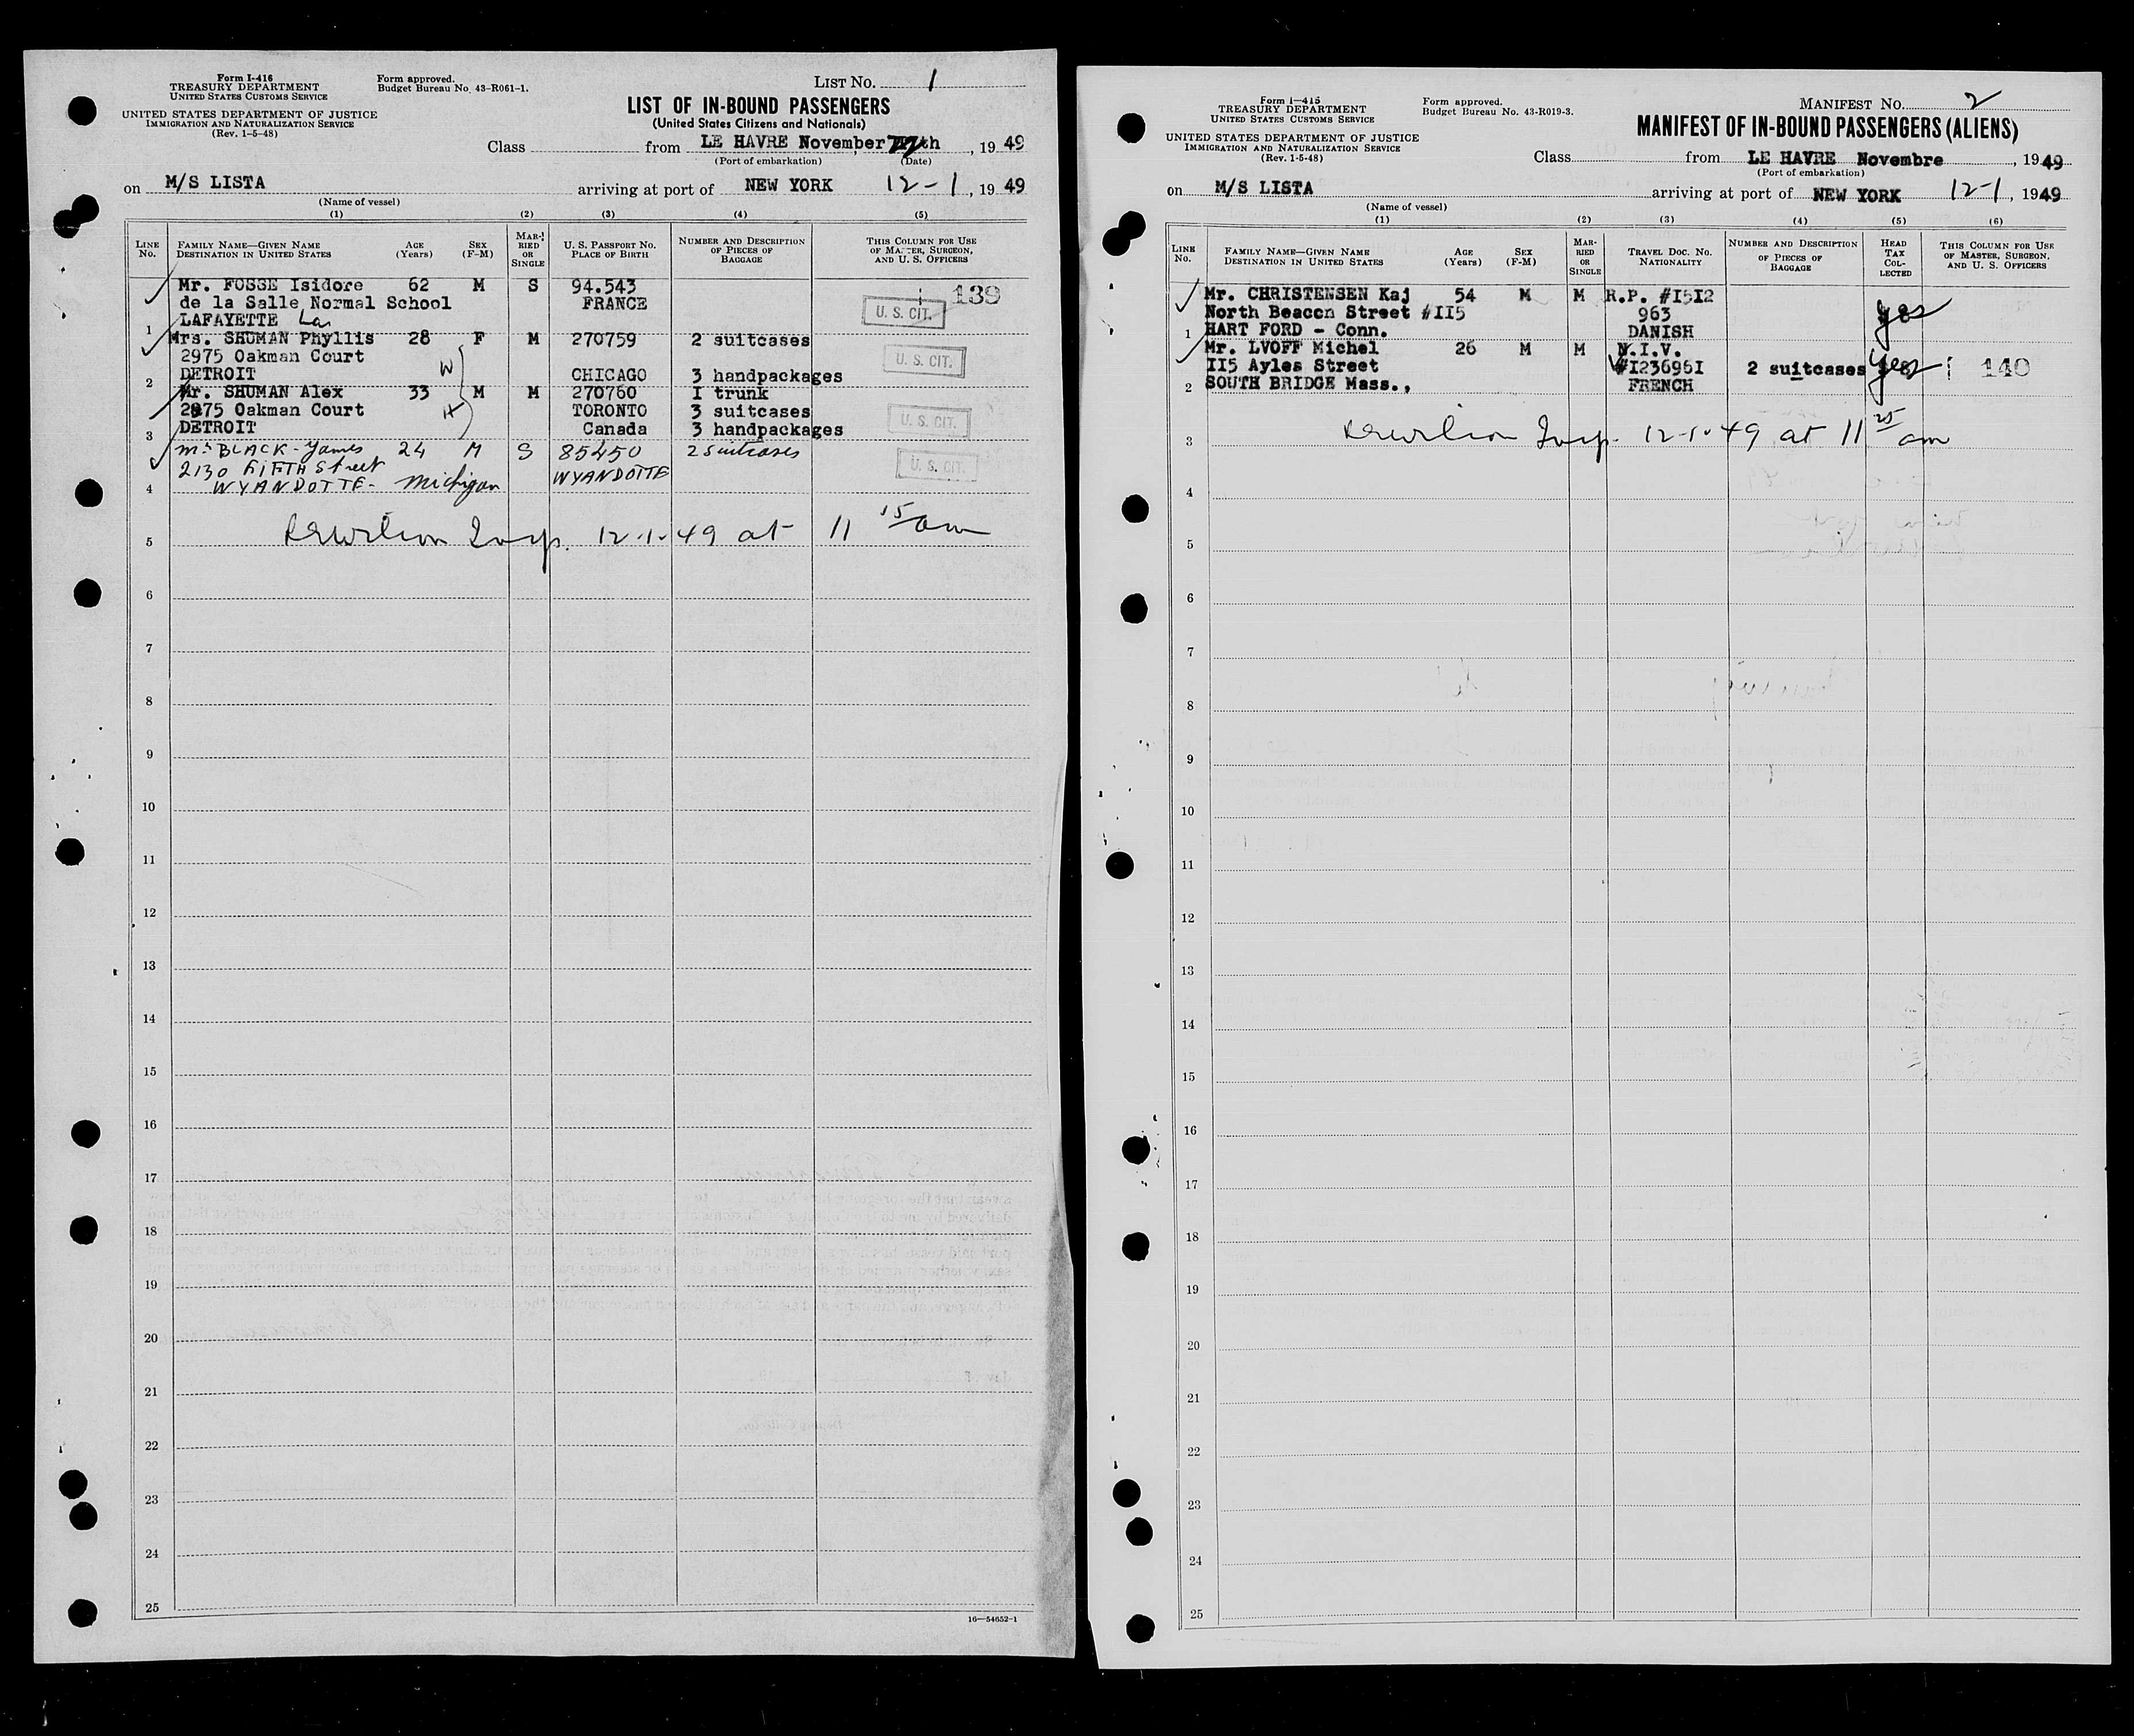 Form I-416
TREASURY DEPARTMENT
UNITED STATES CUSTOMS SERVICE
UNITED STATES DEPARTMENT OF JUSTICE
IMMIGRATION AND NATURALIZATION SERVICE
(Rev. 1-5-48)
Form approved.
Budget Bureau No. 43-R061-1.
LIST NO. 1
LIST OF IN-BOUND PASSENGERS
(United States Citizens and Nationals)
Class from LE HAVRE November th, 1949
(Port of embarkation) (Date)
on M/S LISTA arriving at port of NEW YORK 12-1, 1949
(Name of vessel)
(1) (2) (3) (4) (5)
LINE NO. FAMILY NAME—GIVEN NAME DESTINATION IN UNITED STATES AGE (Years) SEX (F-M) MARRIED OR SINGLE U. S. PASSPORT NO. PLACE OF BIRTH NUMBER AND DESCRIPTION OF PIECES OF BAGGAGE THIS COLUMN FOR USE OF MASTER, SURGEON, AND U. S. OFFICERS
Mr. FOSSE Isidore 62 M S 94.543 139
de la Salle Normal School FRANCE U. S. CIT.
1 LAFAYETTE La
Mrs. SHUMAN Phyllis 28 F M 270759 2 suitcases
2975 Oakman Court W U. S. CIT.
2 DETROIT CHICAGO 3 handpackages
Mr. SHUMAN Alex 33 M M 270760 I trunk
2975 Oakman Court H TORONTO 3 suitcases U. S. CIT.
3 DETROIT Canada 3 handpackages
Mr BLACK - James 24 M S 85450 2 Suitcases
2130 FIFTH Street WYANDOTTE U. S. CIT.
4 WYANDOTTE - Michigan
5 Insp. 12-1-49 at 11 15 am
6
7
8
9
10
11
12
13
14
15
16
17
18
19
20
21
22
23
24
25
16—54652-1
Form I-415
TREASURY DEPARTMENT
UNITED STATES CUSTOMS SERVICE
UNITED STATES DEPARTMENT OF JUSTICE
IMMIGRATION AND NATURALIZATION SERVICE
(Rev. 1-5-48)
Form approved.
Budget Bureau No. 43-R019-3.
MANIFEST NO. 2
MANIFEST OF IN-BOUND PASSENGERS (ALIENS)
Class from LE HAVRE Novembre, 1949
(Port of embarkation)
on M/S LISTA arriving at port of NEW YORK 12-1, 1949
(Name of vessel)
(1) (2) (3) (4) (5) (6)
LINE NO. FAMILY NAME—GIVEN NAME DESTINATION IN UNITED STATES AGE (Years) SEX (F-M) MARRIED OR SINGLE TRAVEL DOC. NO. NATIONALITY NUMBER AND DESCRIPTION OF PIECES OF BAGGAGE HEAD TAX COLLECTED THIS COLUMN FOR USE OF MASTER, SURGEON, AND U. S. OFFICERS
Mr. CHRISTENSEN Kaj 54 M M R.P. #I5I2
North Beacon Street #II5 963 yes
1 HART FORD - Conn. DANISH
Mr. LVOFF Michel 26 M M N.I.V.
II5 Ayles Street #I23696I 2 suitcases yes 140
2 SOUTH BRIDGE Mass., FRENCH
3 Insp. 12-1-49 at 11 25 am
4
5
6
7
8
9
10
11
12
13
14
15
16
17
18
19
20
21
22
23
24
25